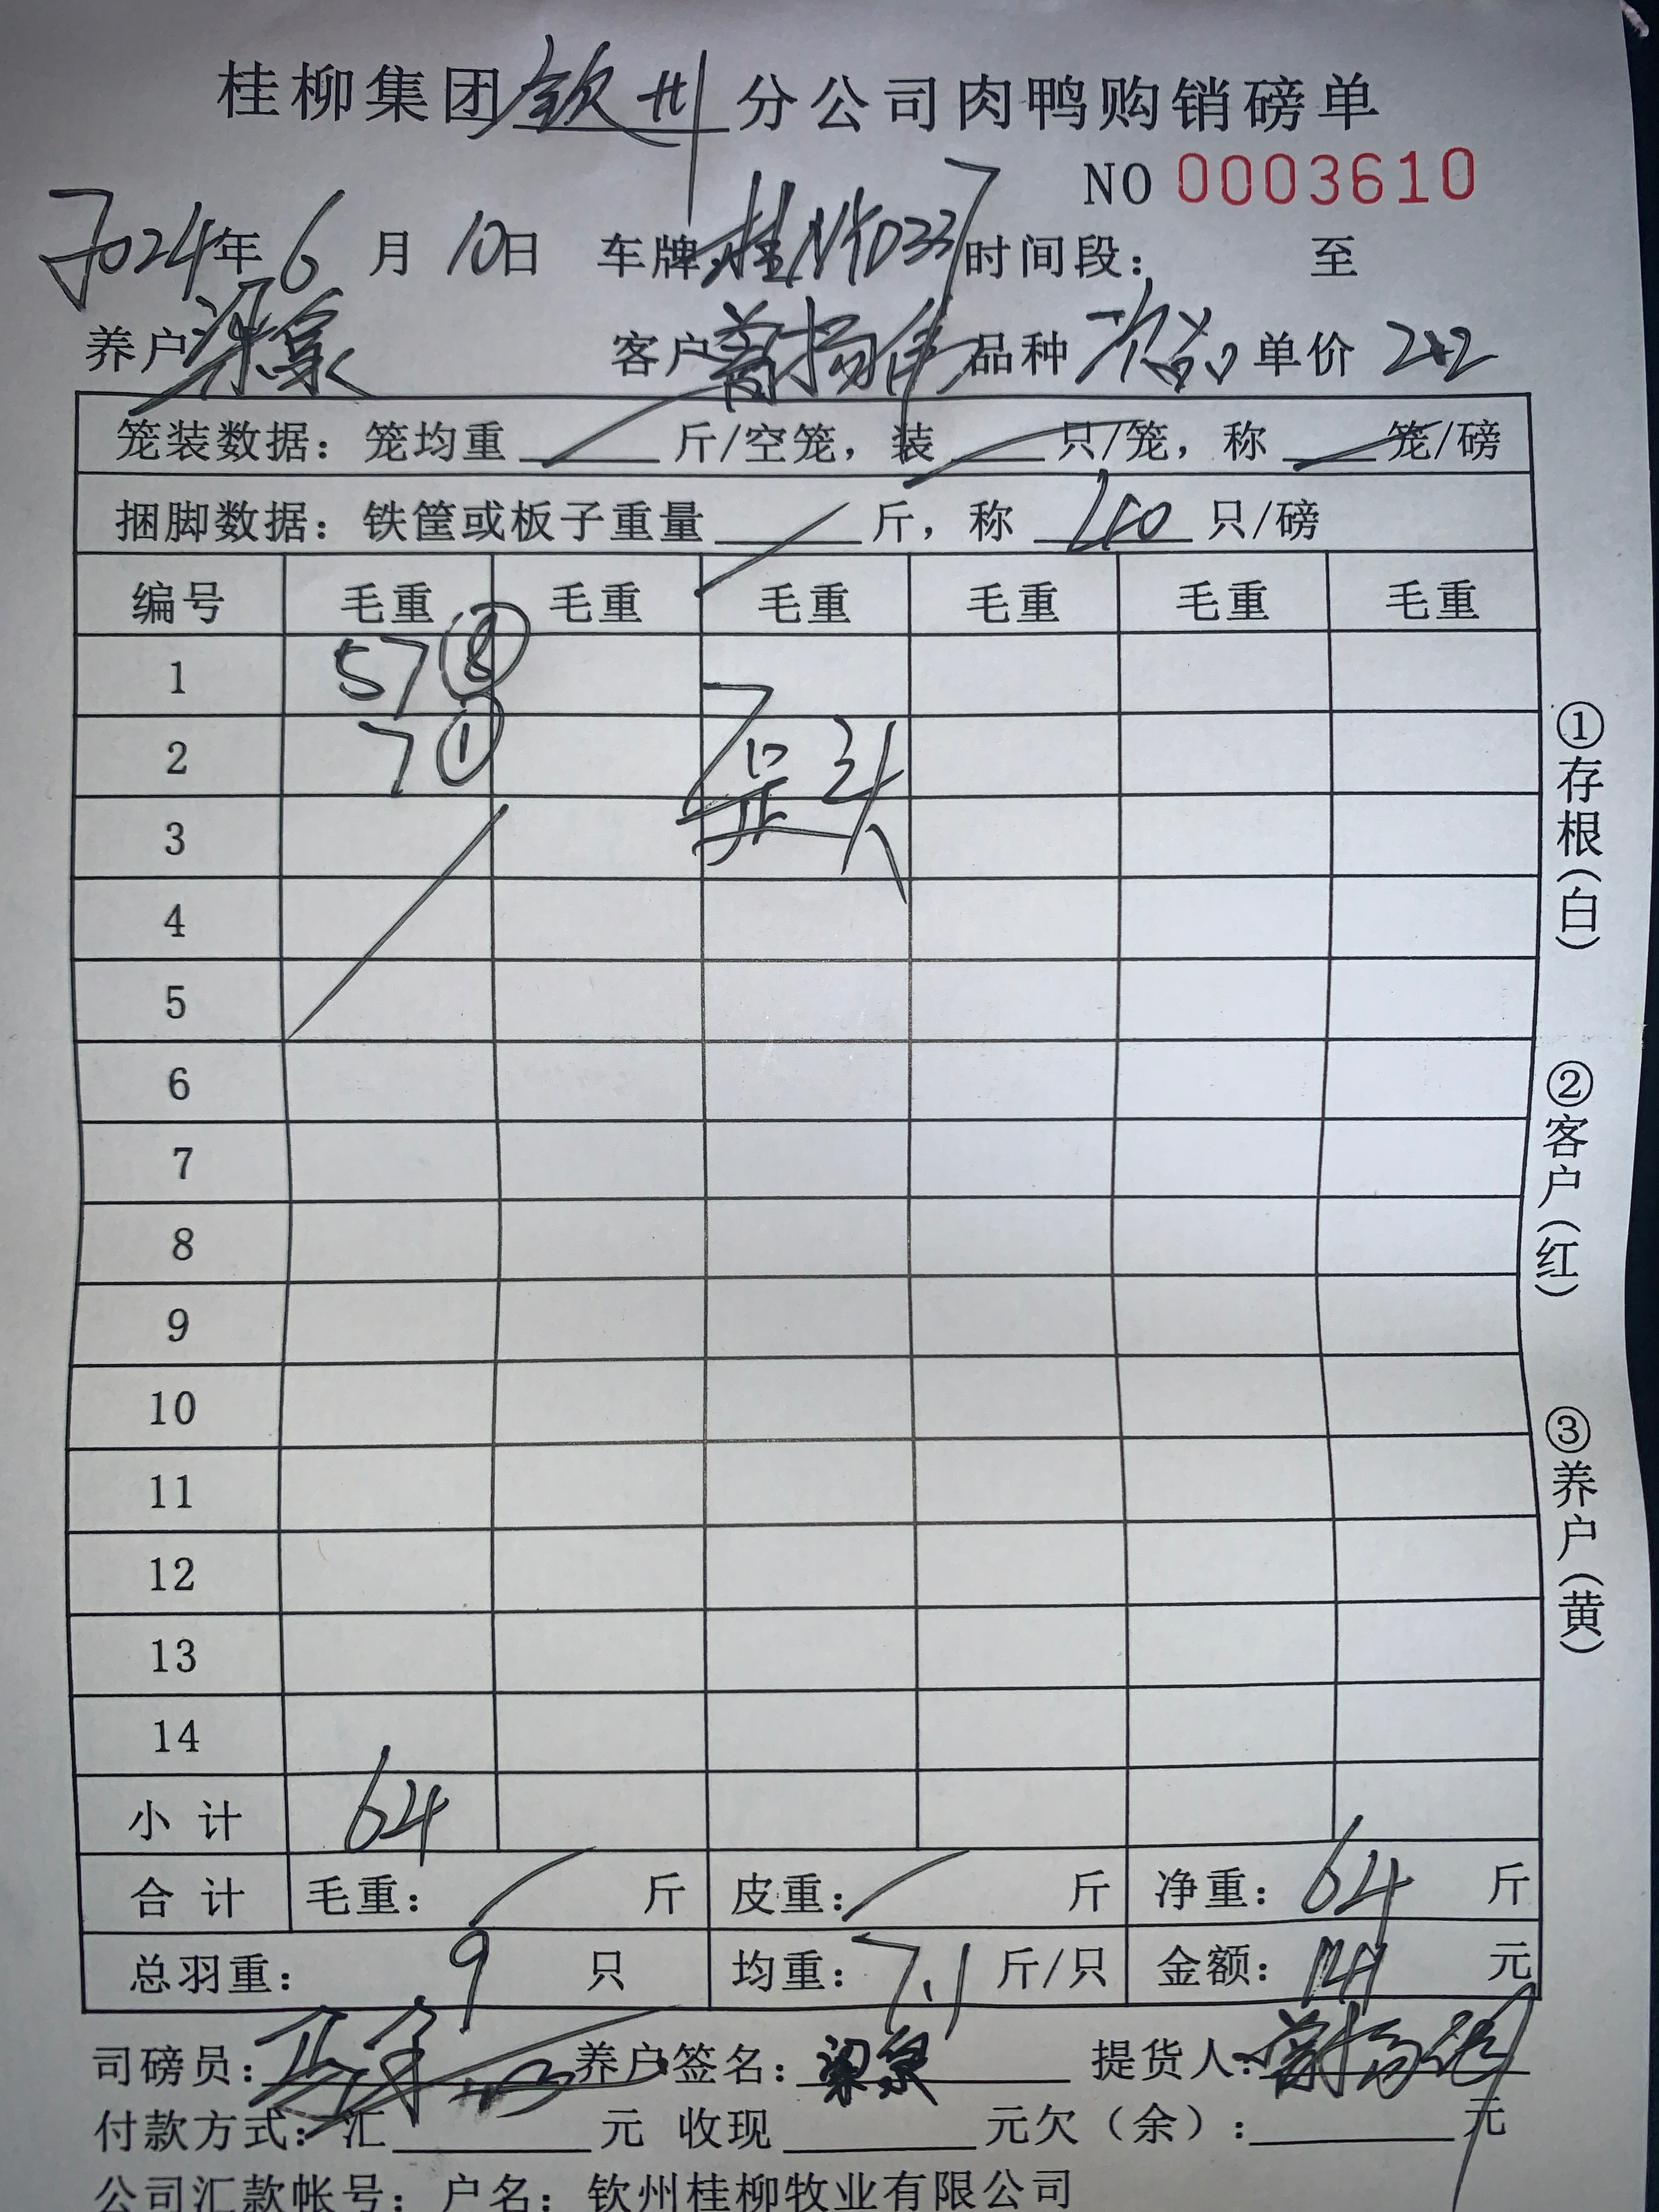 桂柳集团钦州分公司肉鸭购销磅单
NO 0003610
2024年6月10日 车牌:桂NYD337 时间段: 至
养户梁泉 客户曾扬伟 品种次品 单价 2.2
笼装数据:笼均重 斤/空笼,装 只/笼,称 笼/磅
捆脚数据:铁筐或板子重量 斤,称 只/磅
编号 毛重 毛重 毛重 毛重 毛重 毛重
1 57 ⑧
2 7 ①
3
4
5
6
7
8
9
10
11
12
13
14
小计 64
合计 毛重: 斤 皮重: 斤 净重:64 斤
总羽重:9 只 均重:7.1 斤/只 金额:141 元
司磅员: 养户签名:梁泉 提货人:
付款方式:汇 元 收现 元欠(余): 元
公司汇款帐号:户名:钦州桂柳牧业有限公司
①存根(白)
②客户(红)
③养户(黄)